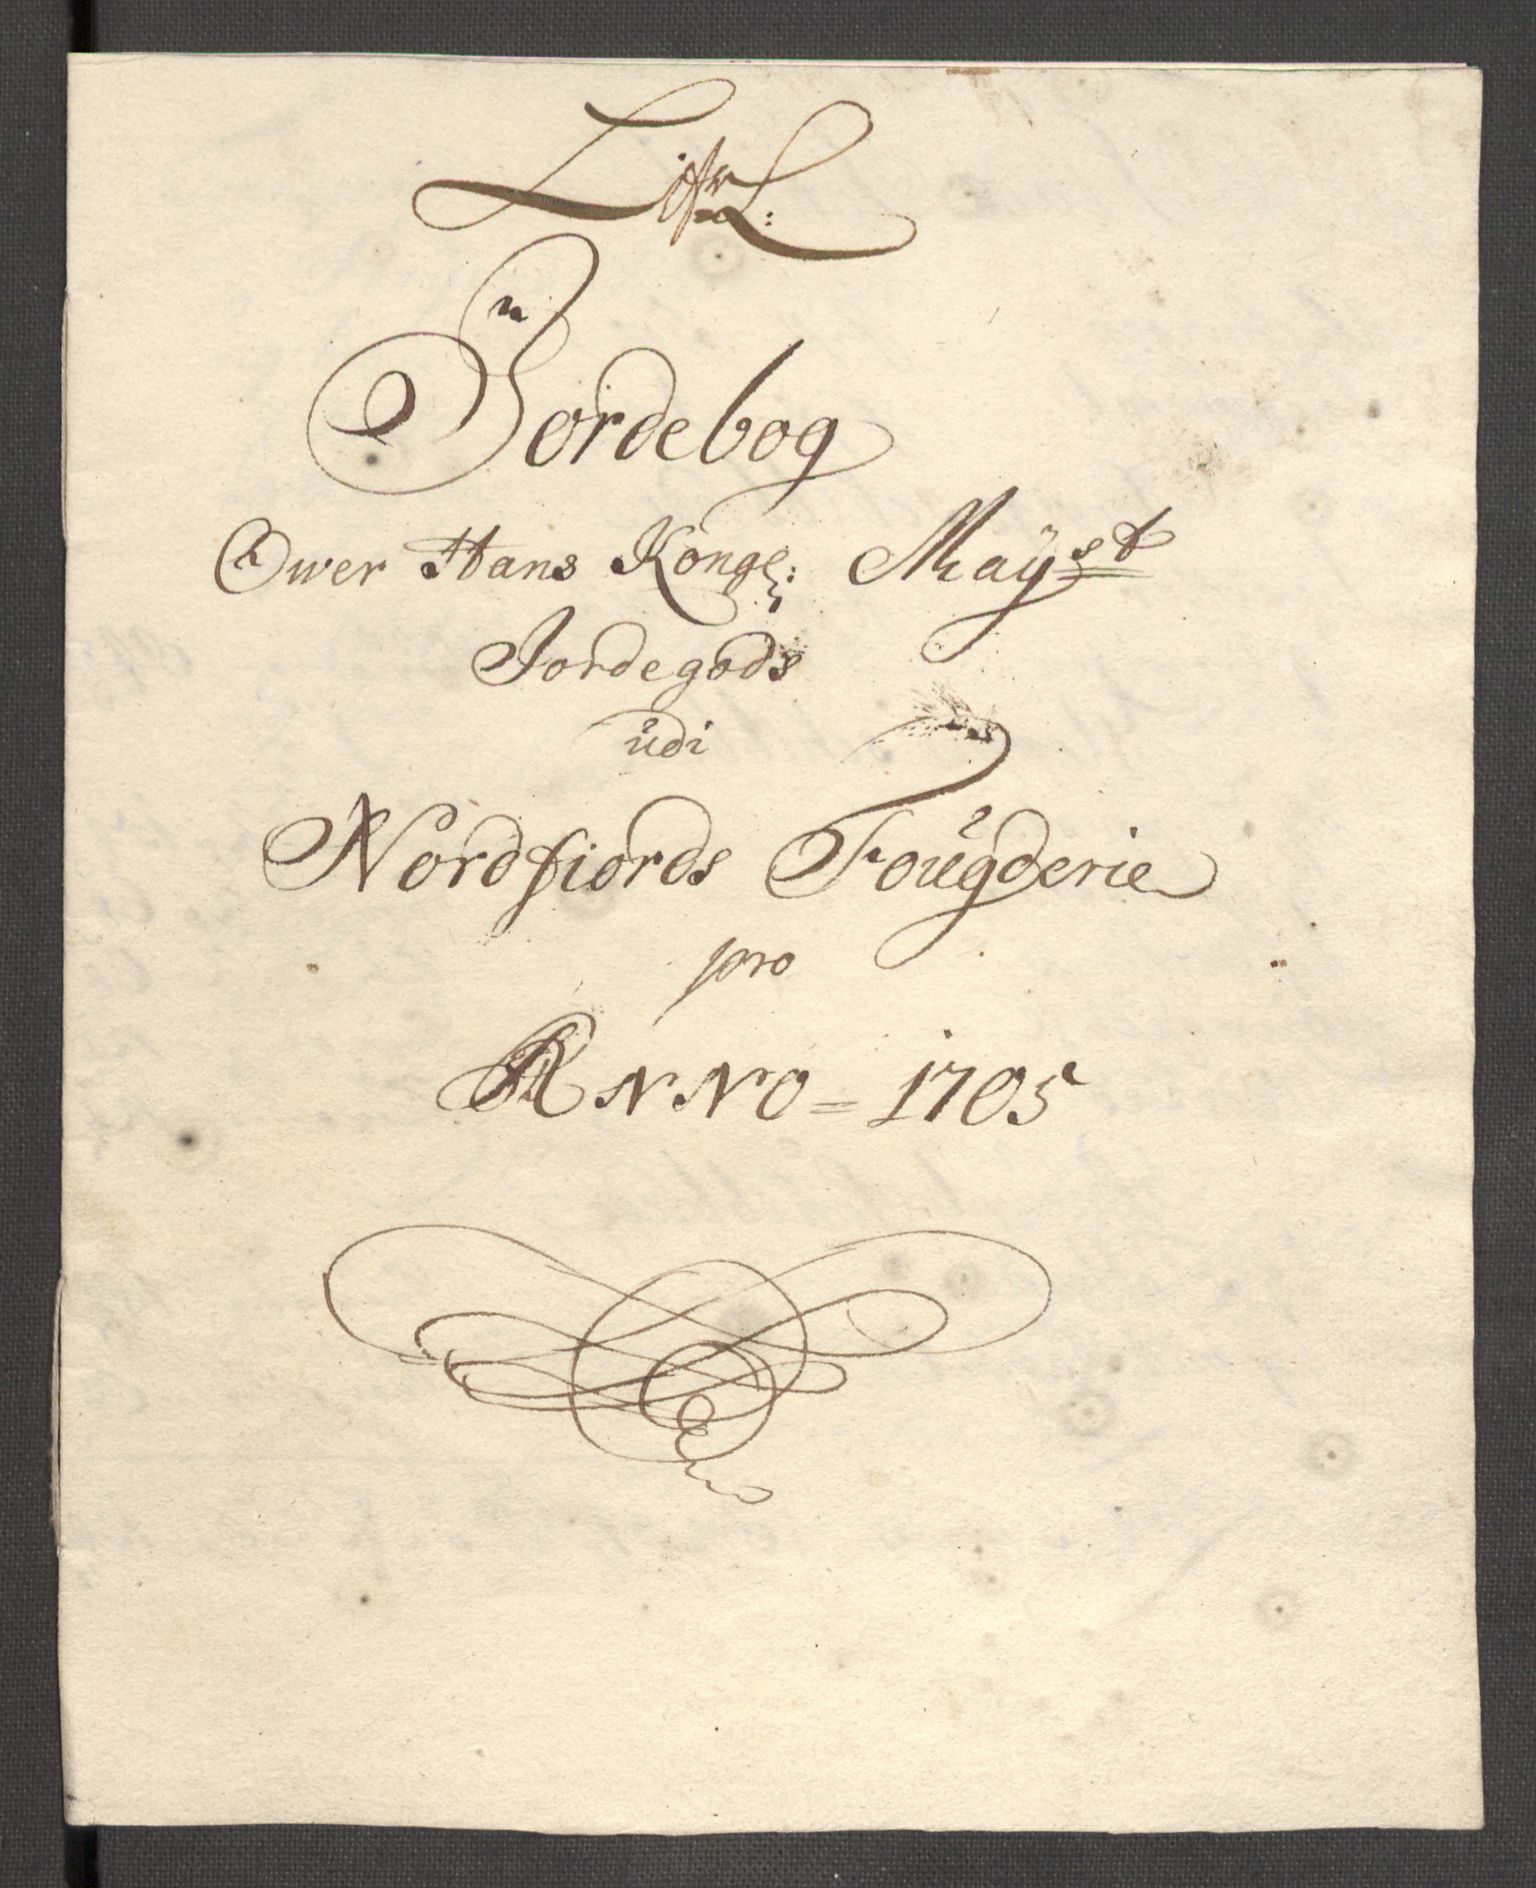 Litr L:
Jordebog
Over Hans Kongl: Mayst
Jordegods
udi
Nordfiords Fougderie
pro
ANNO = 1705